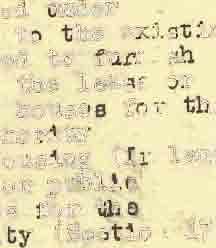 ed under
to the existin
ed to furnish
the lease or
houses for th
housing (Ir lan
or public
s for the
ty (Sectio 17